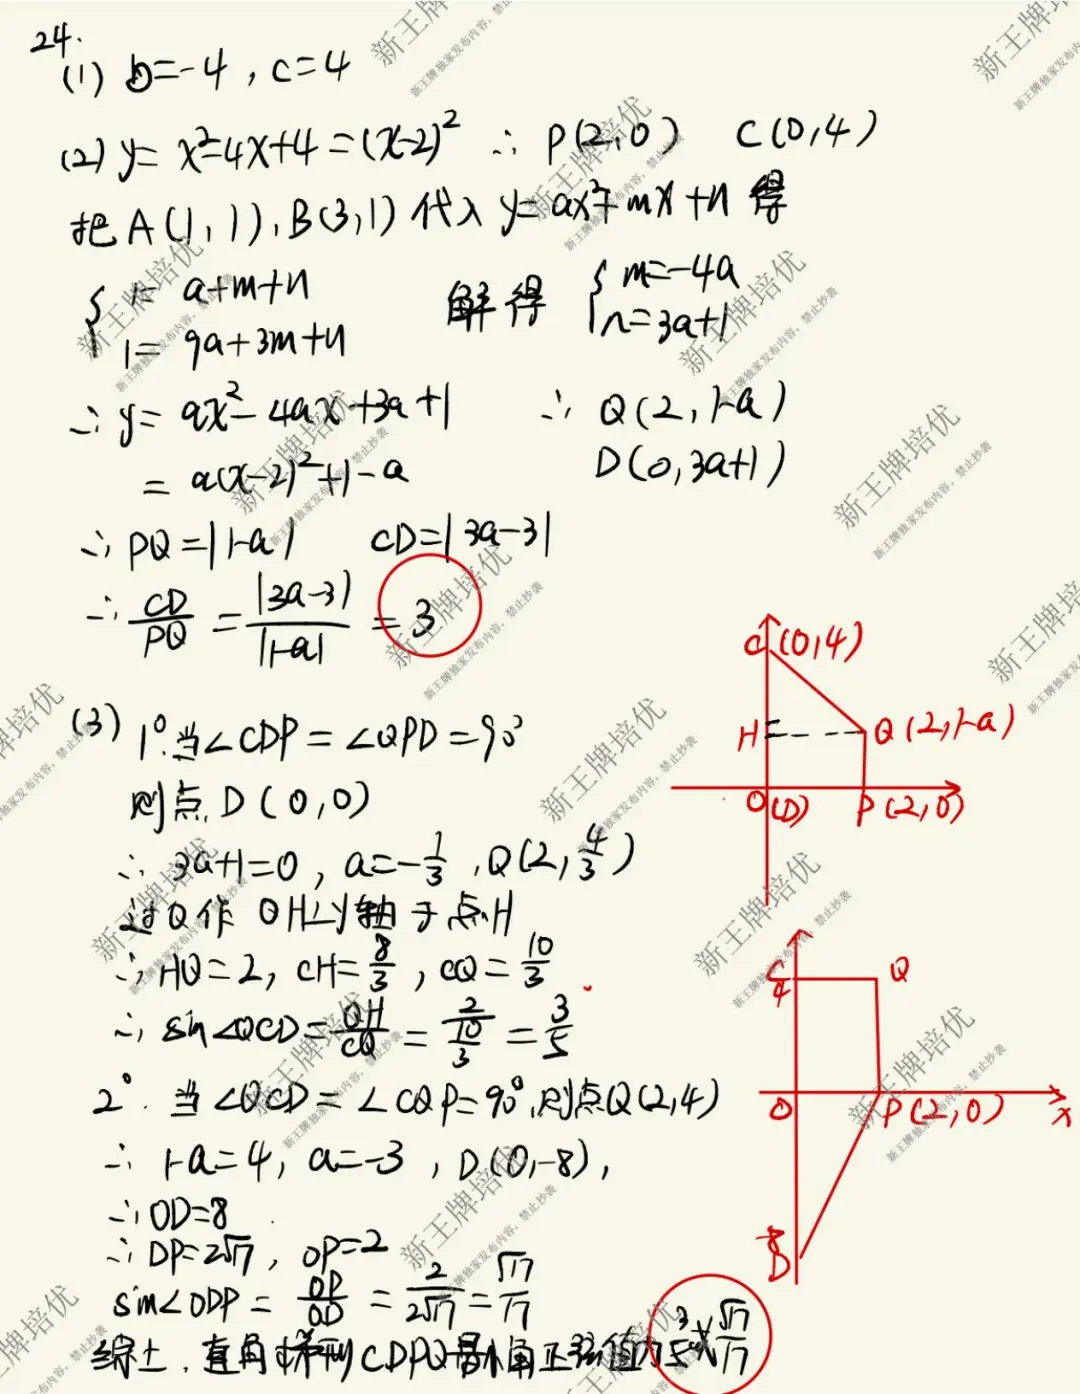 24.
(1) b=-4, c=4
(2) y= x²-4x+4=(x-2)² ∴ P(2,0) C(0,4)
把A(1,1), B(3,1)代入 y=ax²+mx+n 得
{ 1= a+m+n
1= 9a+3m+n
解得 { m=-4a
n=3a+1
∴ y= ax²-4ax+3a+1 ∴ Q(2,1-a)
= a(x-2)²+1-a D(0,3a+1)
∴ PQ=|1-a| CD=|3a-3|
∴ CD/PQ = |3a-3|/|1-a| = 3
C (0,4)
H
Q(2,1-a)
O(D) P(2,0)
(3) 1°.当∠CDP=∠QPD=90°
则点D(0,0)
∴ 3a+1=0, a=-1/3, Q(2,4/3)
过Q作QH⊥y轴于点H
∴ HQ=2, CH=8/3, CQ=10/3
∴ sin∠QCD=QH/CQ=2/(10/3)=3/5
2°. 当∠QCD=∠CQP=90°,则点Q(2,4)
∴ 1-a=4, a=-3, D(0,-8),
∴ OD=8
∴ DP=2√17, OP=2
sin∠ODP=OP/OD=2/(2√17)=√17/17
综上,直角梯形CDPQ最小角正弦值为3/5或√17/17
C
4
Q
O P(2,0) x
-8
D
新王牌培优
新王牌独家发布内容,禁止抄袭